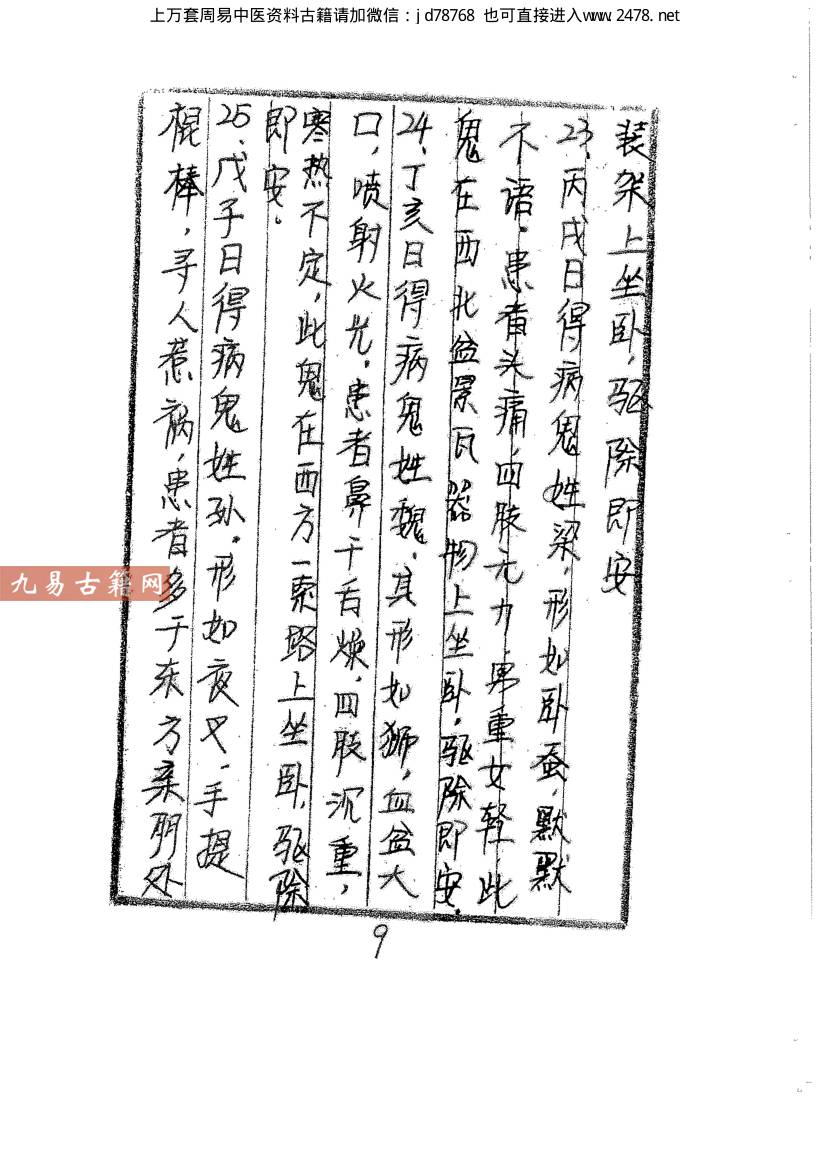 上万套周易中医资料古籍请加微信：jd78768 也可直接进入www.2478.net
装架上坐卧，驱除即安
23、丙戌日得病鬼姓梁，形如卧蚕，默默
不语。患者头痛，四肢无力，男重女轻，此
鬼在西北盆景瓦器物上坐卧。驱除即安。
24、丁亥日得病鬼姓魏，其形如狮，血盆大
口，喷射火光。患者鼻干舌燥，四肢沉重，
寒热不定，此鬼在西方一索路上坐卧，驱除
即安。
25、戊子日得病鬼姓孙。形如夜叉，手提
棍棒，寻人惹祸，患者多于东方亲朋处
九易古籍网
9